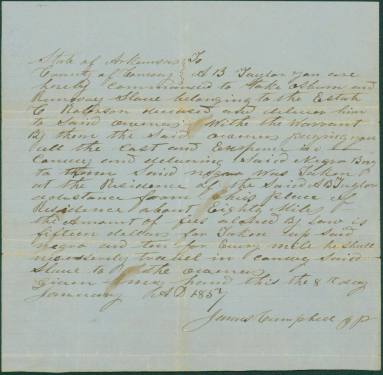 State of Arkansas To
County of Conway A B Taylor you are
hereby Commanded to take and
Runaway Slave belonging to the Estate
deceased and deliver him
to Said owners With the warrant
By them the Said owners paying you
all the Cost and Expense in
and delivering Said Negro Boy
to them Said negro was taken
at the Residence of the Said A B Taylor
a distance from this place of
Residence about Eighty Miles
the amount of fees allowed By Law is
fifteen dollars for taken up said
negro and ten for Every mile he shall
necessarily travel in Said
Slave to the owners
given my hand this the 8 day
January A D 1857
James Campbell J P